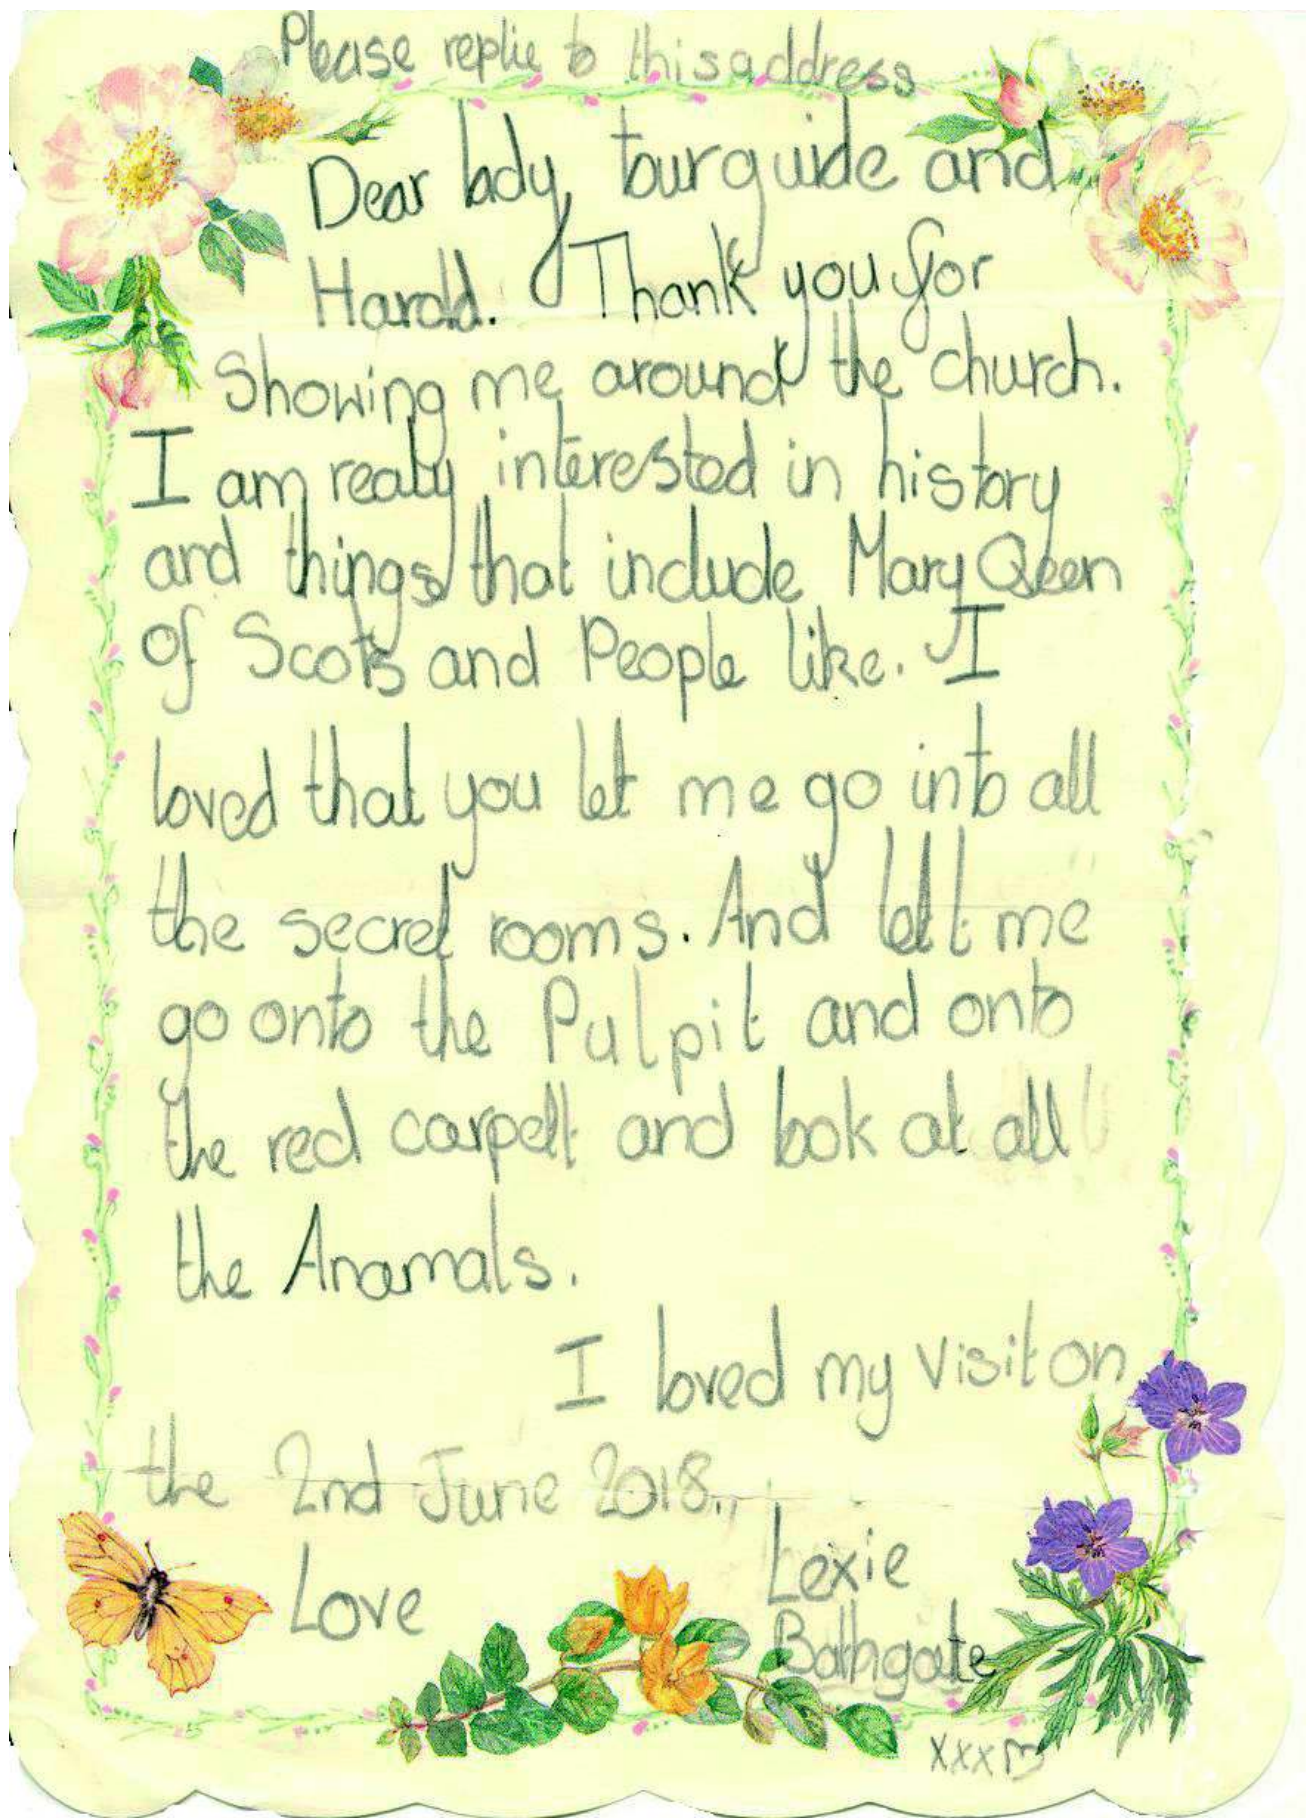 Please replie to this address
Dear lady, tourguide and
Harold. Thank you for
Showing me around the church.
I am realy interested in history
and things that include Mary Qeen
of Scots and People like. I
loved that you let me go into all
the secret rooms. And let me
go onto the Pulpit and onto
the red carpelt and look at all
the Anamals.
I loved my visit on
the 2nd June 2018.
Love
Lexie
Bathgate
xxx